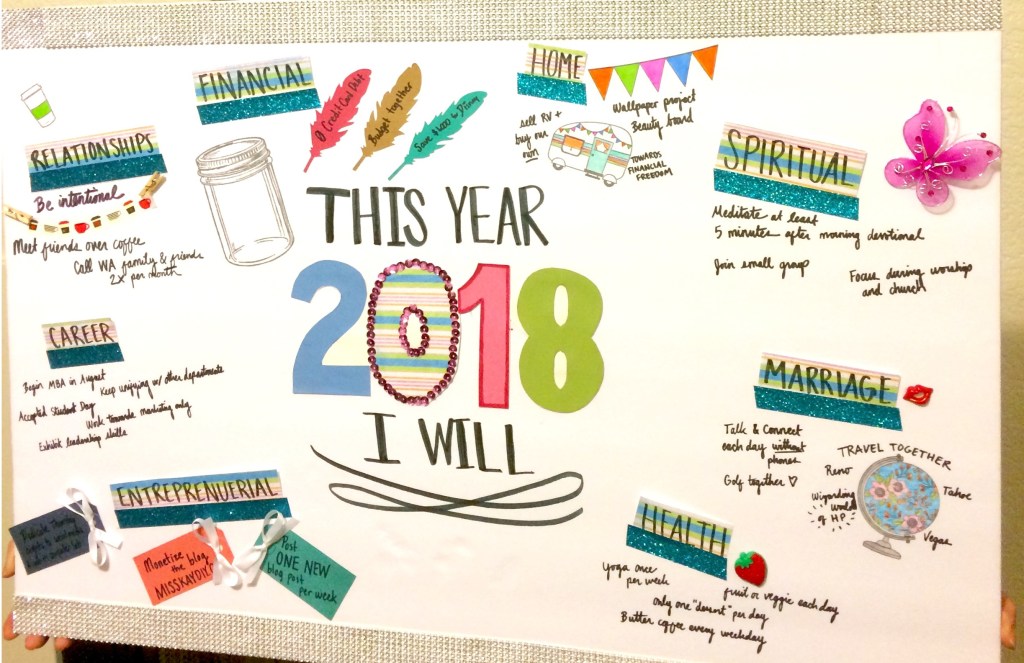 FINANCIAL
Ø Credit Card Debt
Budget together
Save $1,000 to Disney
HOME
sell RV +
buy our
own
Wallpaper project
Beauty board
TOWARDS
FINANCIAL
FREEDOM
RELATIONSHIPS
Be intentional
Meet friends over coffee
Call WA family & friends
2x per month
THIS YEAR
2018
I WILL
SPIRITUAL
Meditate at least
5 minutes after morning devotional
Join small group
Focus during worship
and church
CAREER
Begin MBA in August
Keep unifying w/ other departments
Accepted Student Day
Work towards marketing only
Exhibit leadership skills
MARRIAGE
Talk & Connect
each day without
phones
Golf together
TRAVEL TOGETHER
Reno
Tahoe
Wizarding
World
of HP
Vegas
ENTREPRENUERIAL
Monetize the blog
MISSKAYDIY
Post
ONE NEW
blog post
per week
HEALTH
Yoga once
per week
fruit or veggie each day
only one "dessert" per day
Butter coffee every weekday